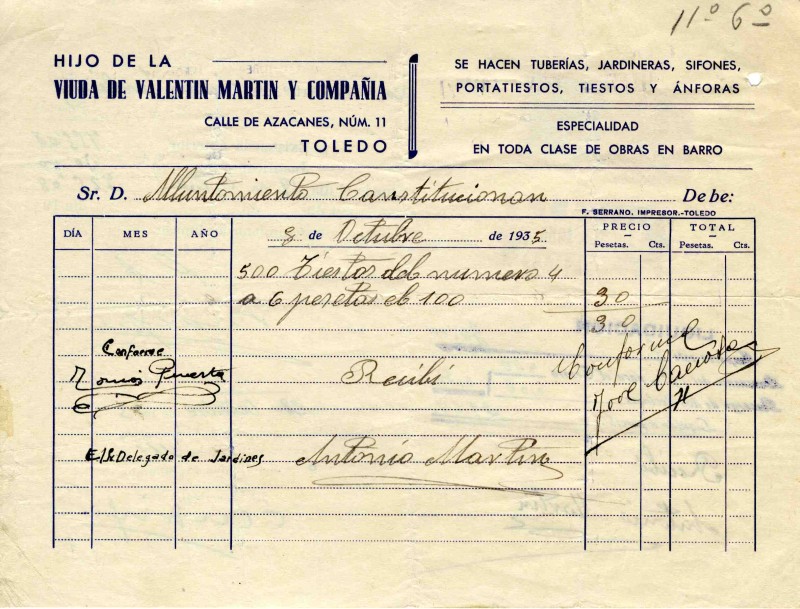 11º 6º
HIJO DE LA
VIUDA DE VALENTIN MARTIN Y COMPAÑIA
CALLE DE AZACANES, NÚM. 11
TOLEDO
SE HACEN TUBERÍAS, JARDINERAS, SIFONES,
PORTATIESTOS, TIESTOS Y ÁNFORAS
ESPECIALIDAD
EN TODA CLASE DE OBRAS EN BARRO
Sr. D. Alluntamiento Constitucionan Debe:
F. SERRANO, IMPRESOR.-TOLEDO
DÍA MES AÑO PRECIO TOTAL
Pesetas. Cts. Pesetas. Cts.
de Octubre de 1935
500 Tiestos del numero 4
a 6 pesetas el 100 30
30
Conforme
Puerta
Recibí
Conforme
José
El Delegado de Jardines
Antonio Martin